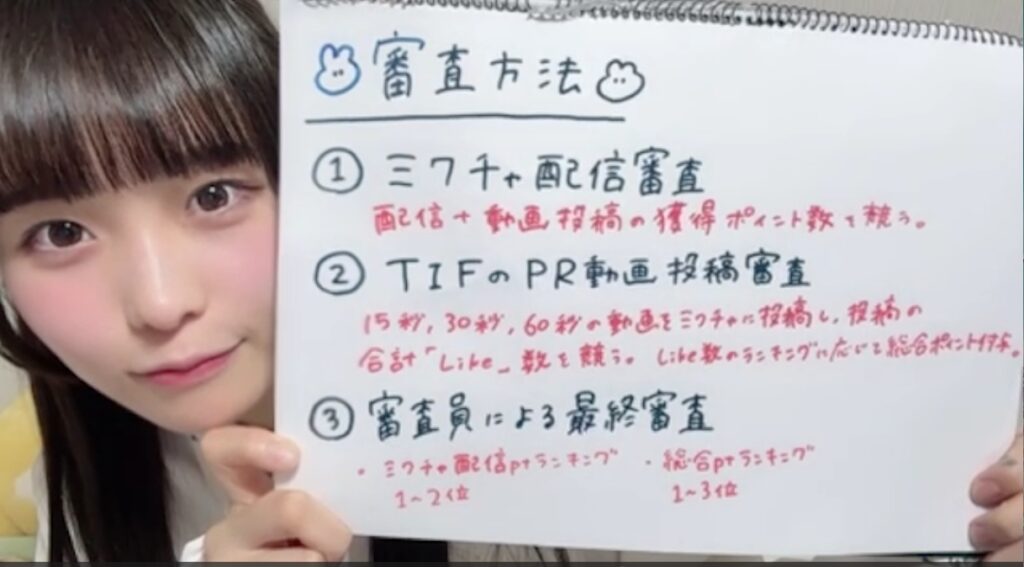 審査方法
① ミクチャ配信審査
配信+動画投稿の獲得ポイント数を競う。
② TIFのPR動画投稿審査
15秒,30秒,60秒の動画をミクチャに投稿し、投稿の
合計「Like」数を競う。Like数のランキングに応じて総合ポイント付与。
③ 審査員による最終審査
・ミクチャ配信ptランキング ・総合ptランキング
1~2位 1~3位